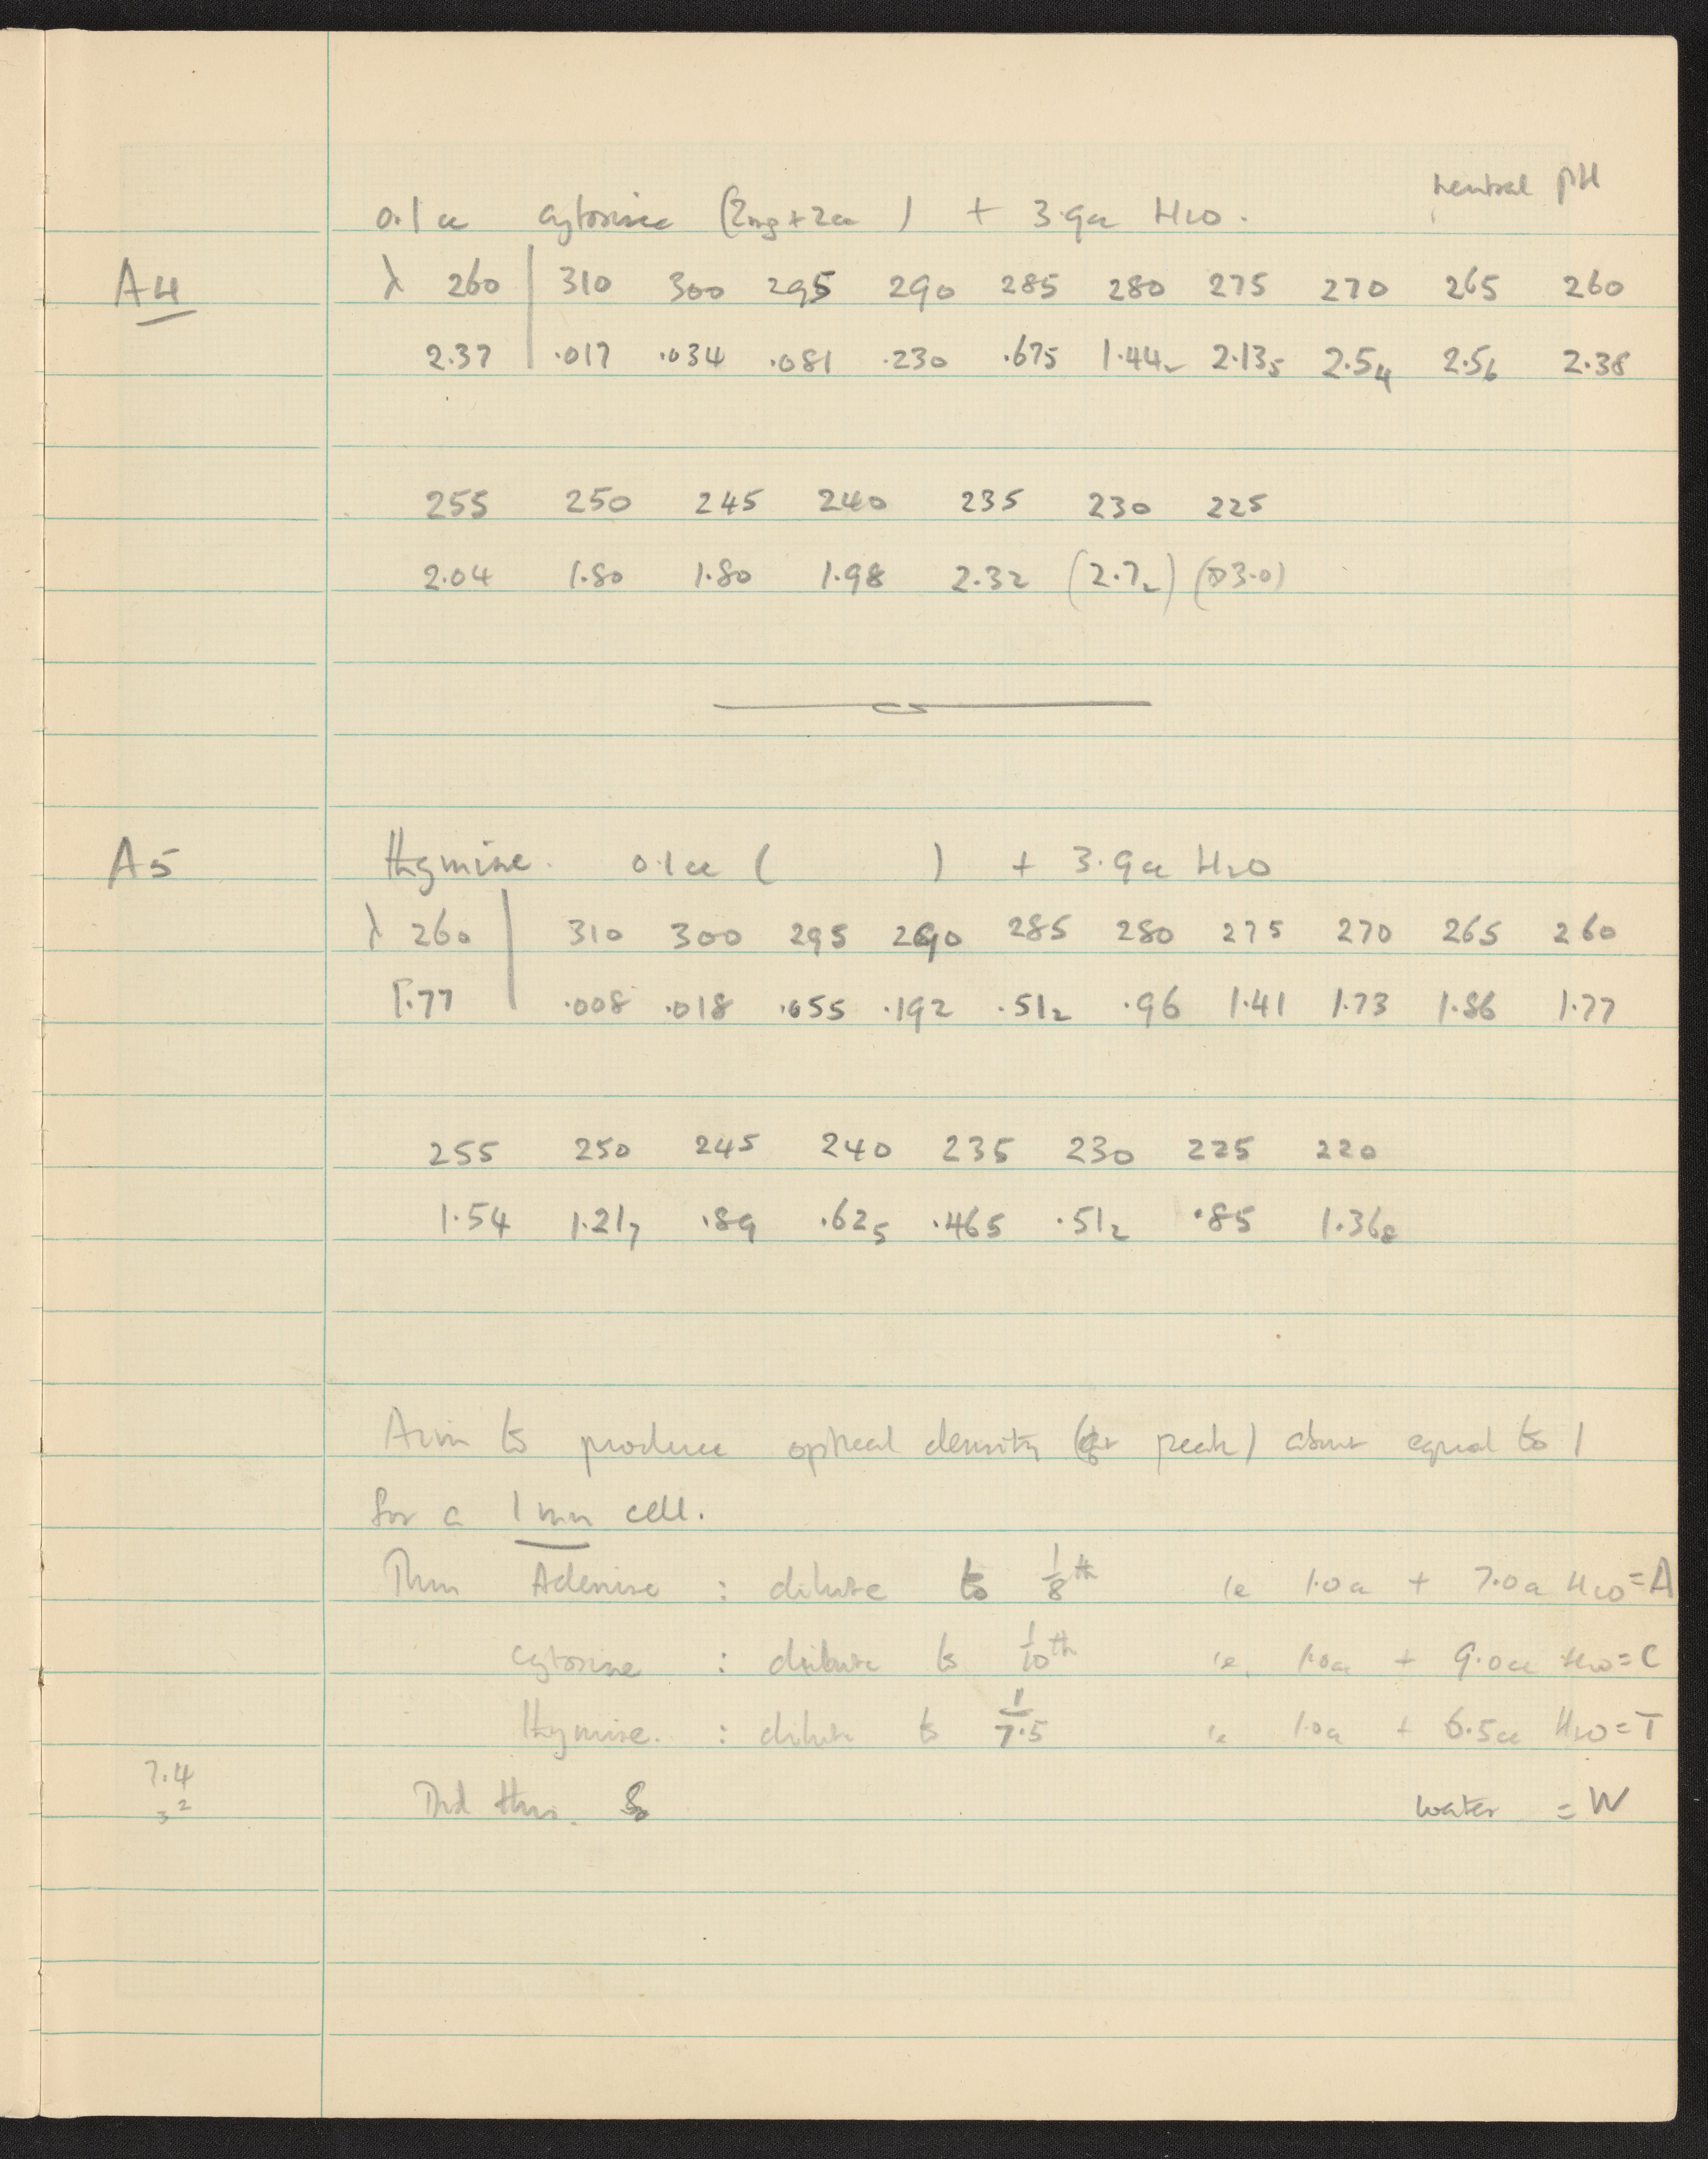 neutral pH
0.1 cc cytosine (2mg + 2cc ) + 3.9cc H2O.
A4 λ 260 | 310 300 295 290 285 280 275 270 265 260
2.37 | .017 .034 .081 .230 .675 1.44₂ 2.13₅ 2.5₄ 2.5₆ 2.38
255 250 245 240 235 230 225
2.04 1.80 1.80 1.98 2.32 (2.7₂) ( 3.0)
A5 Thymine. 0.1cc ( ) + 3.9cc H2O
λ 260 | 310 300 295 290 285 280 275 270 265 260
1.77 | .008 .018 .055 .192 .51₂ .96 1.41 1.73 1.86 1.77
255 250 245 240 235 230 225 220
1.54 1.21₇ .89 .62₅ .465 .51₂ .85 1.36₈
Aim to produce optical density (at peak) about equal to 1
for a 1 mm cell.
Thus Adenine : dilute to 1/8th ie 1.0cc + 7.0cc H2O = A
cytosine : dilute to 1/10th ie. 1.0cc + 9.0cc H2O = C
Thymine. : dilute to 1/7.5 ie 1.0cc + 6.5cc H2O = T
7.4 Did this. water = W
3 2